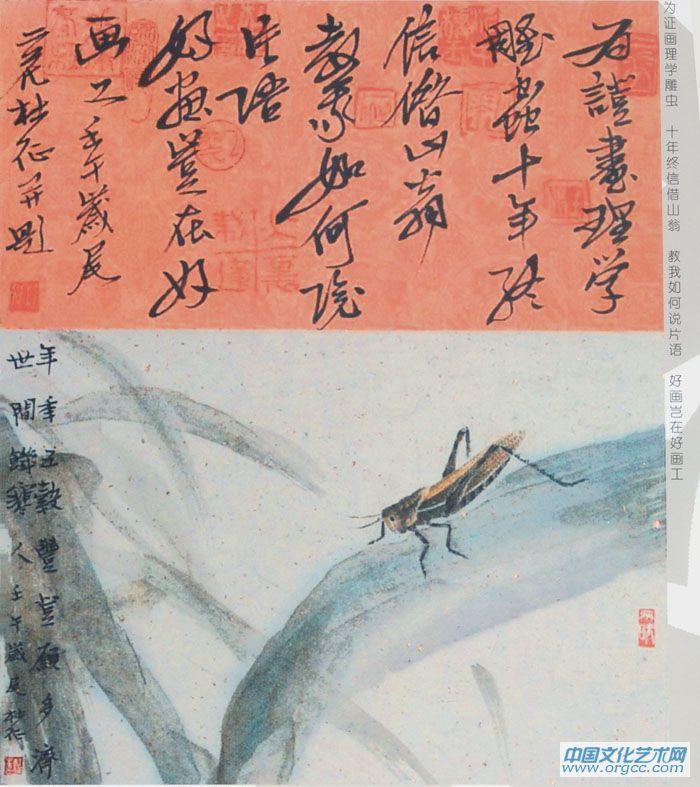 为證畫理学
雕蟲十年终
信借山翁
教我如何说
片语
好畫岂在好
画工 壬午歲尾
杜征并题
为证画理学雕虫 十年终信借山翁 教我如何说片语 好画岂在好画工
年年五穀豐登願多濟
世間人 壬午歲尾 杜征
中国文化艺术网
www.orgcc.com